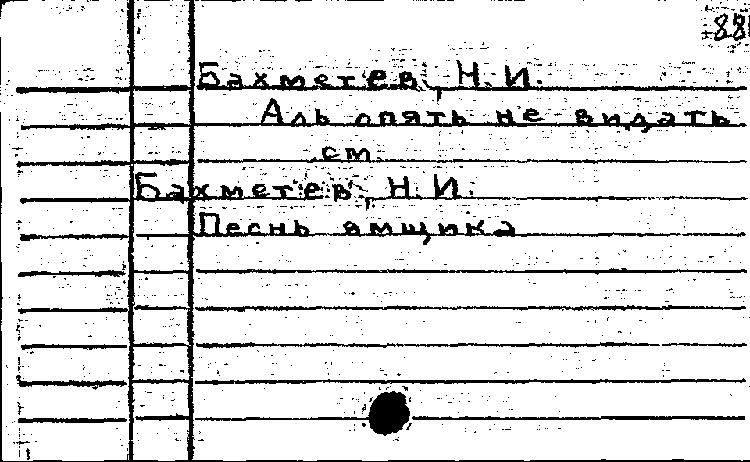 88
Бахметев, Н. И.
Аль опять не видать
см.
Бахметев, Н. И.
Песнь ямщика